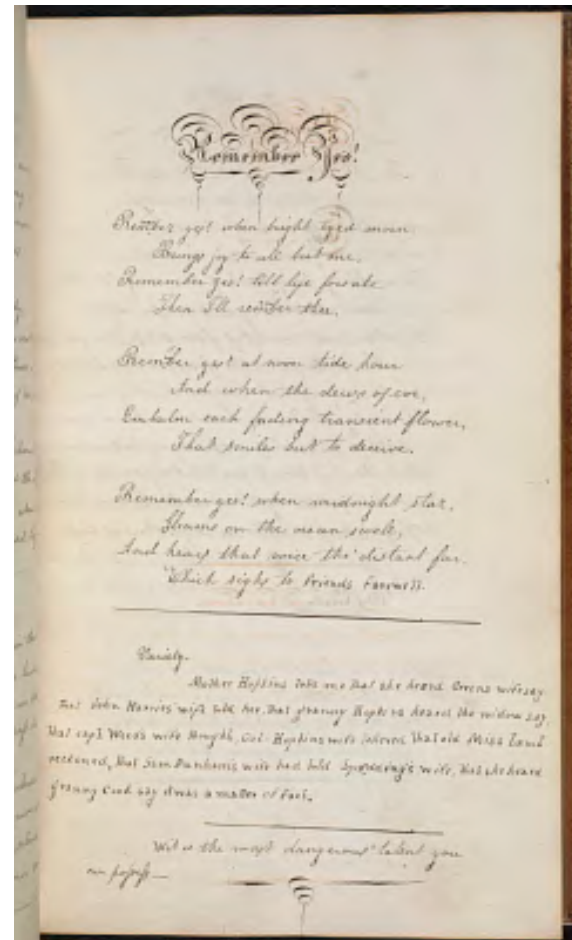 Remember Yes!
Rember yes! when bright eyed morn
Brings joy to all but me,
Remember yes! till life forsake
Then I'll rember thee.
Remember yes! at noon tide hour
And when the dews of eve,
Embalm each fading transient flower,
That smiles but to deceive.
Remember yes! when midnight star,
Gleams on the ocean swell,
And hears that voice the distant far.
Which sighs to Friends Farewell.
Variety.
Mother Hopkins told me that she heard Greens wife say
that John Harris's wife told her, that granny Hopkins heard the widow say,
that capt Weeds wife thought, Col. Hopkins wife believed that old Miss Lamb
reckoned, that Sam Dunham's wife had told Spalding's wife, that she heard
granny Cook say it was a matter of fact.
Wit is the most dangerous talent you
can possess—